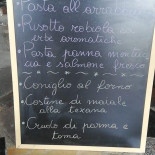 • Pasta all'arrab
• Risotto robiola
erbe aromatiche
• Pasta panna
e salmone fresco
• Coniglio al forno
• Costine di maiale
alla texana
• Crudo di parma e
toma